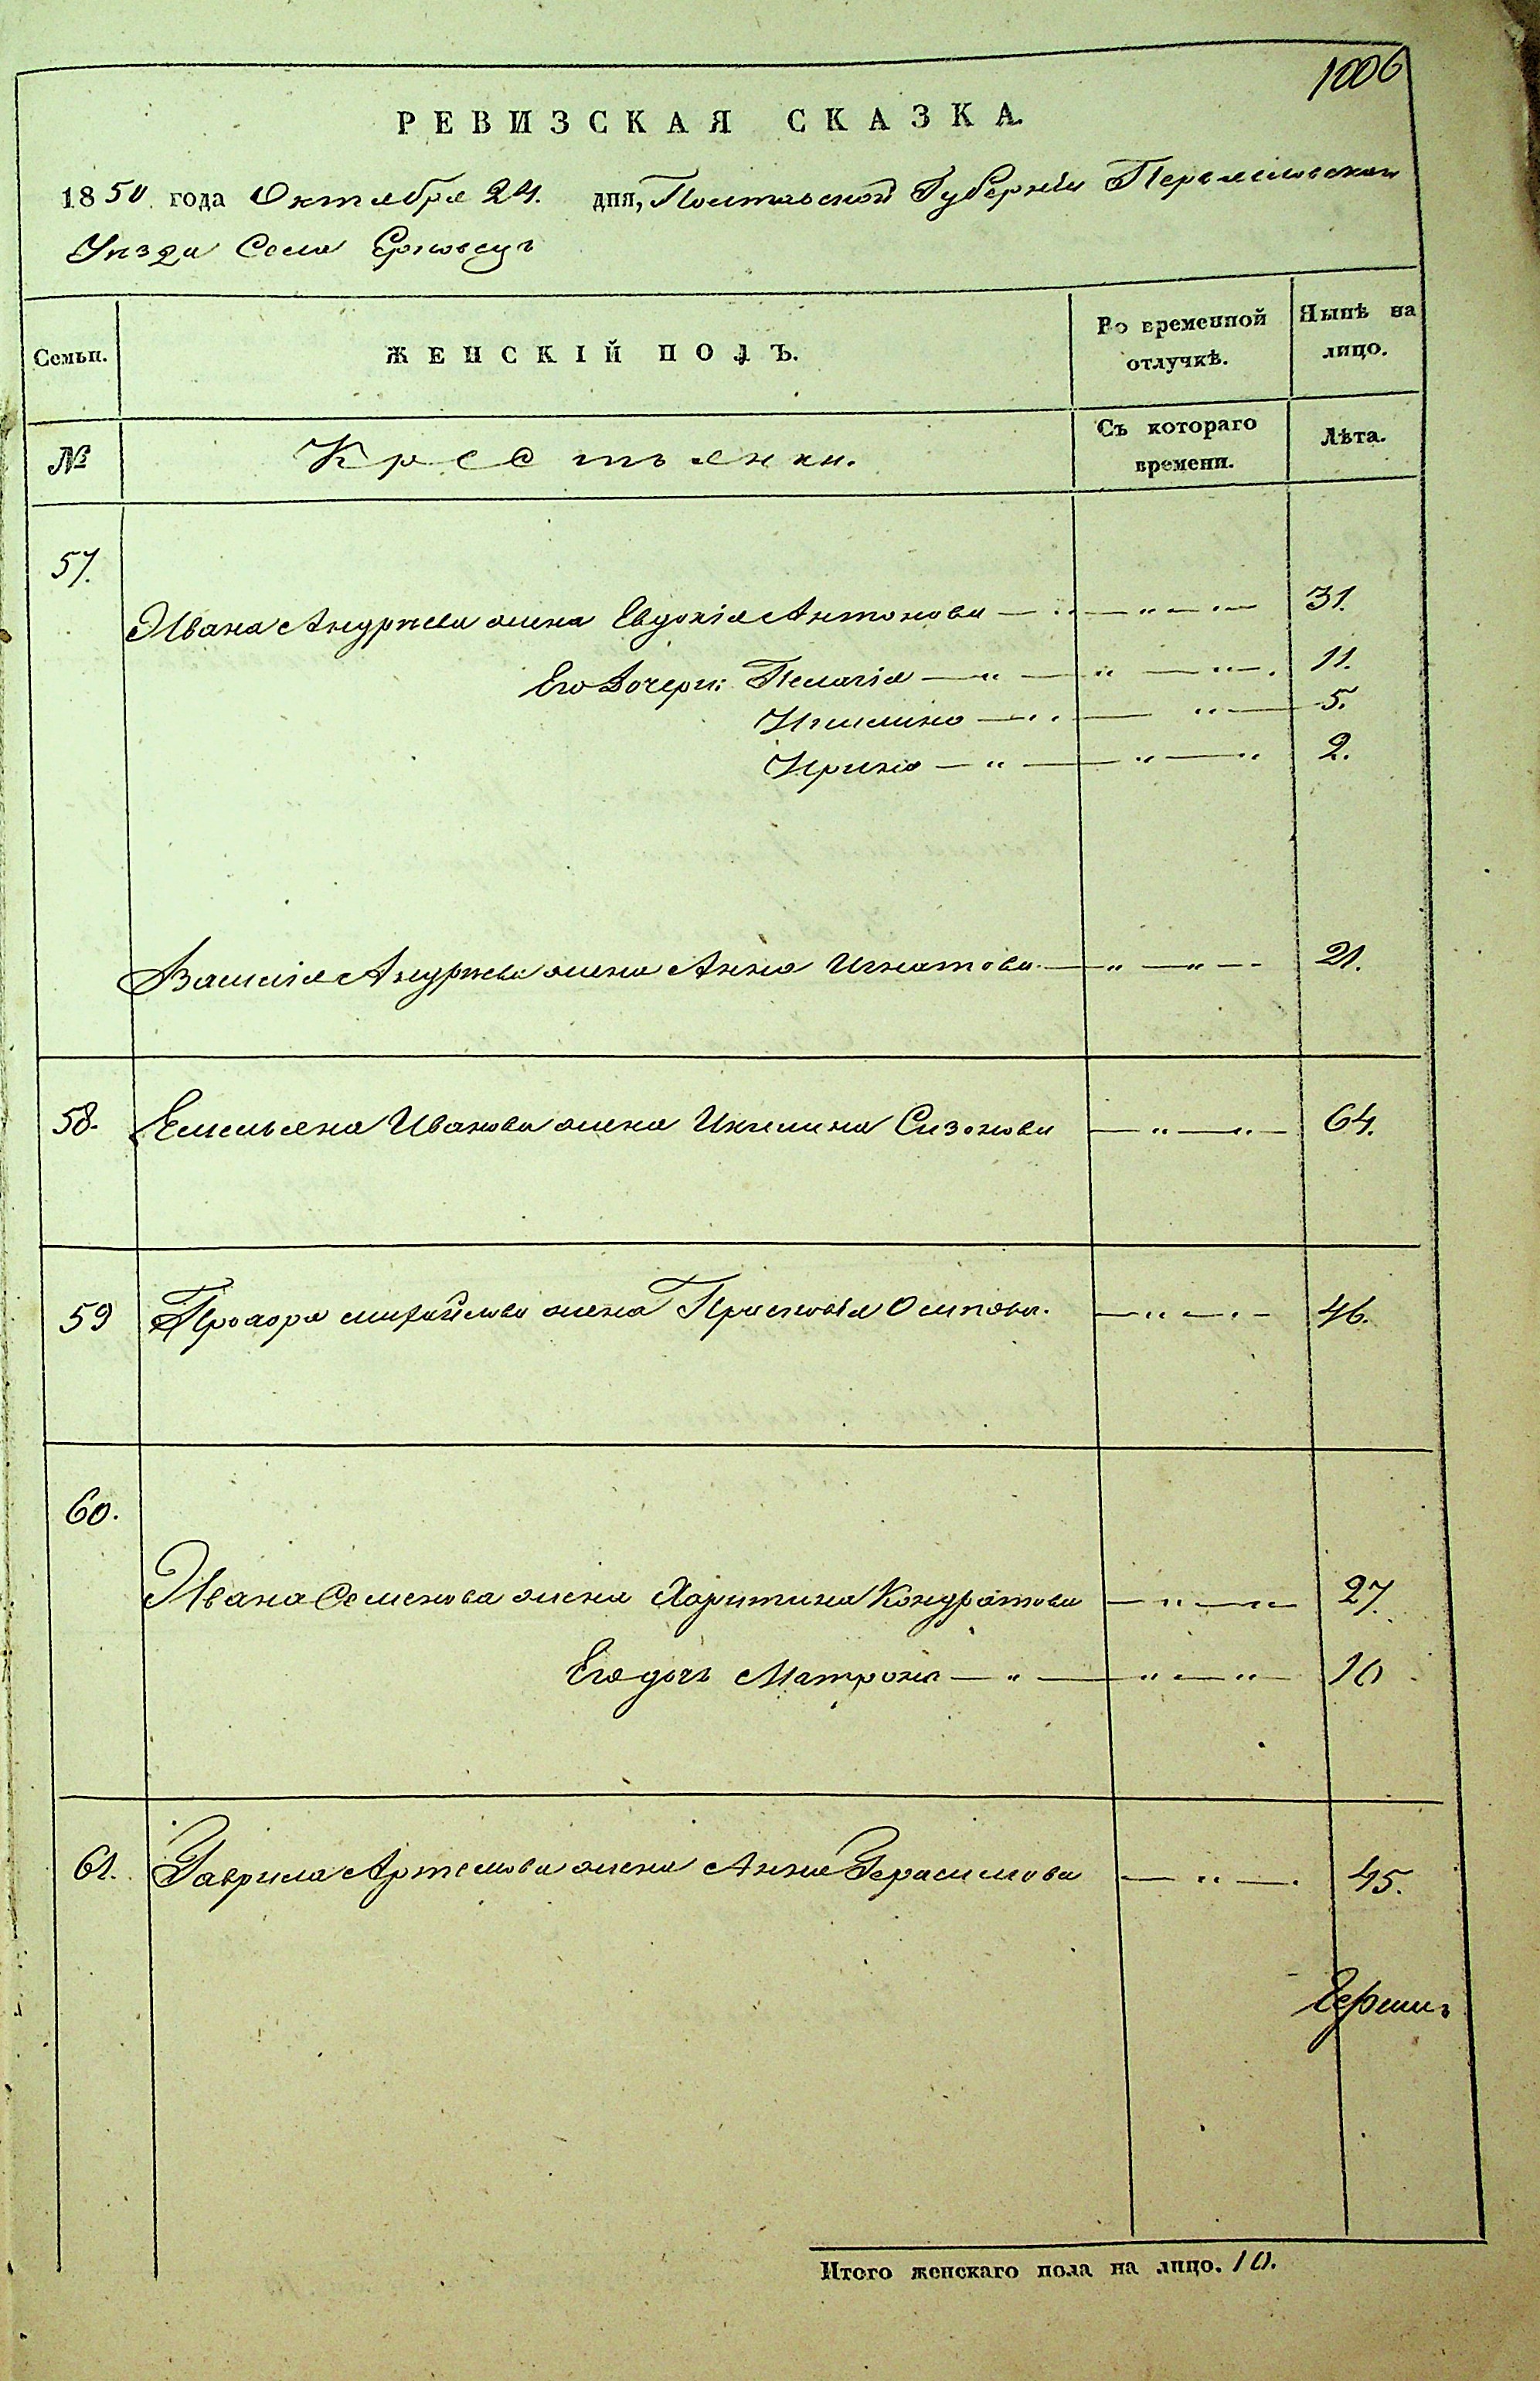 1006
РЕВИЗСКАЯ СКАЗКА.
1850 года Октября 24. дня, Полтавской Губернiи Переяславскаго
Уѣзда Села Ерковецъ
Семьи.
ЖЕНСКІЙ ПОЛЪ.
Во временной отлучкѣ.
Нынѣ на лицо.
№
Крестьянки.
Съ котораго времени.
Лѣта.
57.
Ивана Андрѣева жена Евдокія Антонова — " — " — 31.
Его Дочери: Пелагія — " — " — " — 11.
Акилина — " — " — 5.
Ирина — " — " — " 2.
Василія Андрѣева жена Анна Игнатова — " — " — 21.
58. Емельяна Иванова жена Икилина Сизонова — " — " — 64.
59 Прохора Михайлова жена Прасковія Осипова. — " — " — 46.
60.
Ивана Семенова жена Харитина Кондратова — " — " — 27.
Его дочь Матрона — " — " — " — 10
61. Гаврила Артемова жена Анна Герасимова — " — . 45.
Итого женскаго пола на лицо. 10.